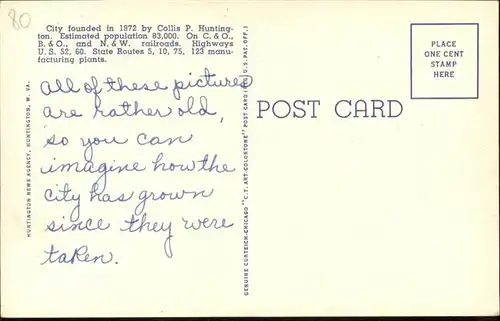 80
City founded in 1872 by Collis P. Hunting-
ton. Estimated population 83,000. On C. & O.,
B. & O., and N. & W. railroads. Highways
U. S. 52, 60. State Routes 5, 10, 75. 123 manu-
facturing plants.
all of these pictures
are rather old,
so you can
imagine how the
city has grown
since they were
taken.
HUNTINGTON NEWS AGENCY, HUNTINGTON, W. VA.
GENUINE CURTEICH-CHICAGO "C.T. ART-COLORTONE" POST CARD (REG. U.S. PAT. OFF.)
POST CARD
PLACE
ONE CENT
STAMP
HERE